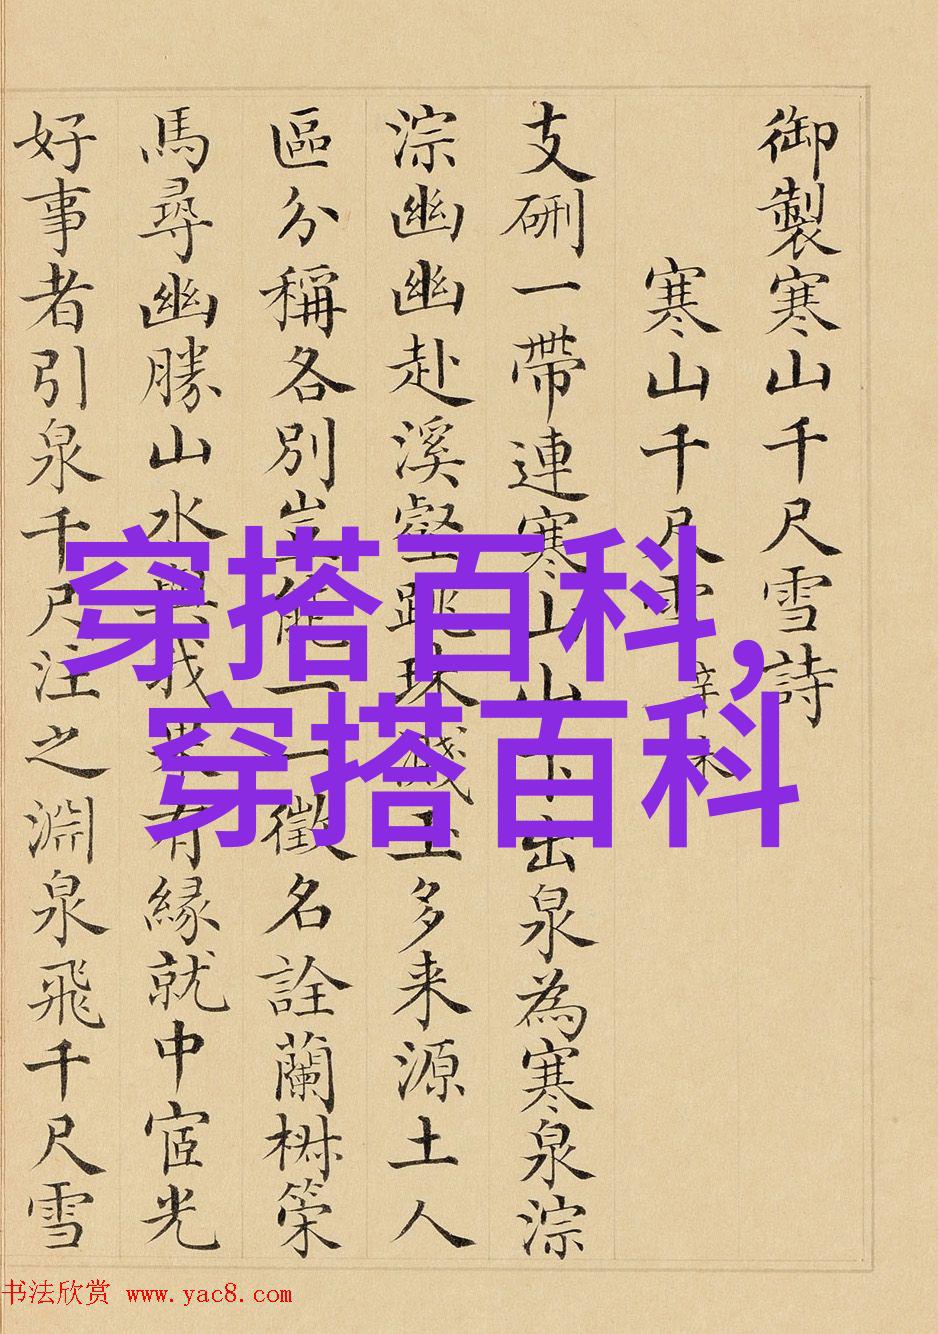 御製寒山千尺雪詩
寒山千尺雪 辛未
支硎一帶連寒山山下出泉為寒泉淙
淙幽幽赴溪壑跳珠濺玉多来源土人
區分稱各別豈能一一徵名詮蘭椒策
馬尋幽勝山水與我果有緣就中宧光
好事者引泉千尺注之淵泉飛千尺雪
穿搭百科,
穿搭百科
书法欣赏 www.yac8.com